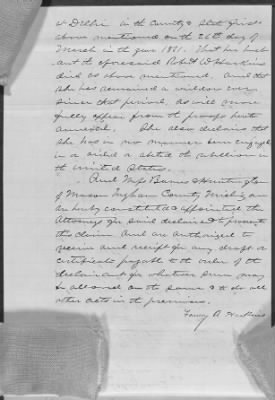 at Delhi in the County & State first
above mentioned on the 26th day of
March in the year 1861. That her husb
and the aforesaid Robert W Harkins
died as above mentioned. And that
she has remained a widow ever
since that period, as will more
fully appear from the proofs hereto
annexed. She also declares that
she has in no manner been engaged
in or aided or abetted the rebellion in
the United States.
And Huntington
of Mason Ingham County Michigan
are hereby constituted & appointed the
Attorneys for said declarant to prosecute
this claim And are authorized to
receive and receipt for any draft or
certificate payable to the order of the
declarant for whatever sum may
be allowed on the same & to do all
other acts in the premises.
Fanny A Harkins